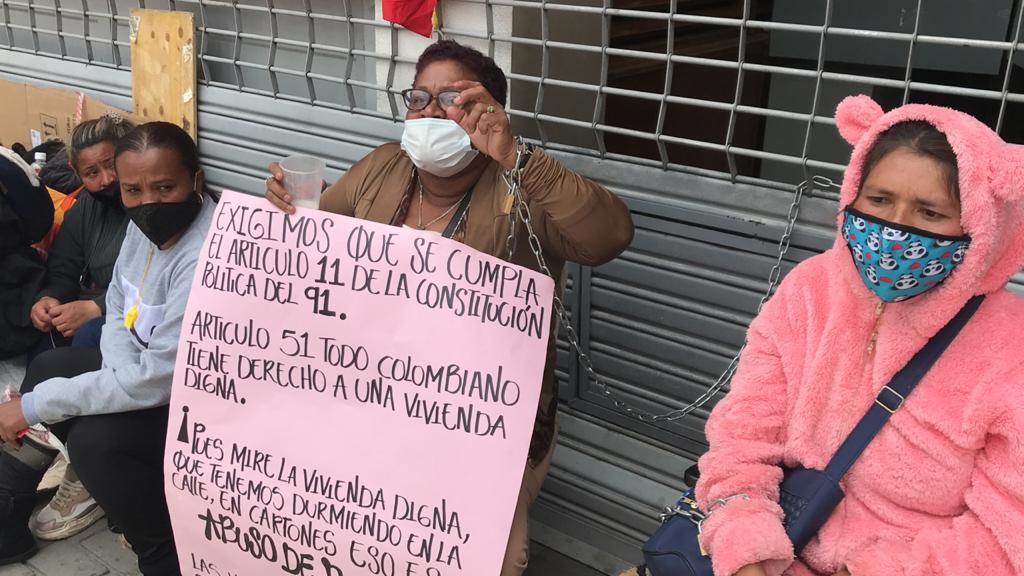 EXIGIMOS QUE SE CUMPLA
EL ARTICULO 11 DE LA CONSTITUCIÓN
POLITICA DEL 91.
ARTICULO 51 TODO COLOMBIANO
TIENE DERECHO A UNA VIVIENDA
DIGNA.
¡PUES MIRE LA VIVIENDA DIGNA,
QUE TENEMOS DURMIENDO EN LA
CALLE, EN CARTONES ESO ES
ABUSO DE
LAS